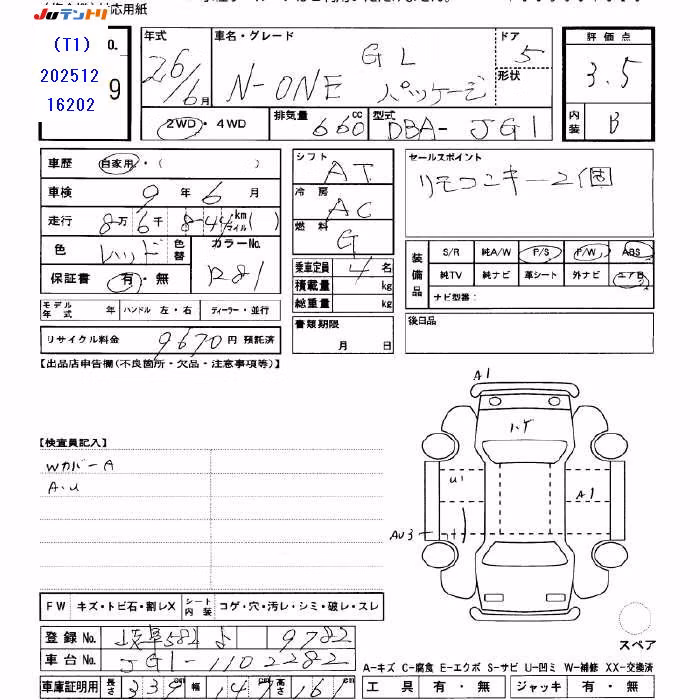 JUテントリ
対応用紙
(T1)
202512
16202
O.
9
年式
26/6月
車名・グレード
N-ONE GL パッケージ
ドア
5
形状
評価点
3.5
内装
B
2WD・4WD
排気量
660cc
型式
DBA-JG1
車歴 自家用・( )
車検 9年6月
走行 8万6千844km(マイル)
色 レッド 色替
カラーNo.
R81
保証書 有・無
モデル年式 年 ハンドル 左・右 ディーラー・並行
リサイクル料金 9670円 預託済
シフト AT
冷房 AC
燃料 G
乗車定員 4名
積載量 kg
総重量 kg
書類期限
月 日
セールスポイント
リモコンキー2個
装備品
S/R 純A/W P/S P/W ABS
純TV 純ナビ 革シート 外ナビ エアB
ナビ型番:
後日品
【出品店申告欄(不良箇所・欠品・注意事項等)】
【検査員記入】
Wカバー A
A・U
A1
ハゲ
U1
A1
AU3
FW キズ・トビ石・割レX シート内装 コゲ・穴・汚レ・シミ・破レ・スレ
登録No. 岐阜582 よ 9782
車台No. JG1-1102282
車庫証明用 長さ 339 幅 147 高さ 161
スペア
A-キズ C-腐食 E-エクボ S-サビ U-凹ミ W-補修 XX-交換済
工具 有・無 ジャッキ 有・無